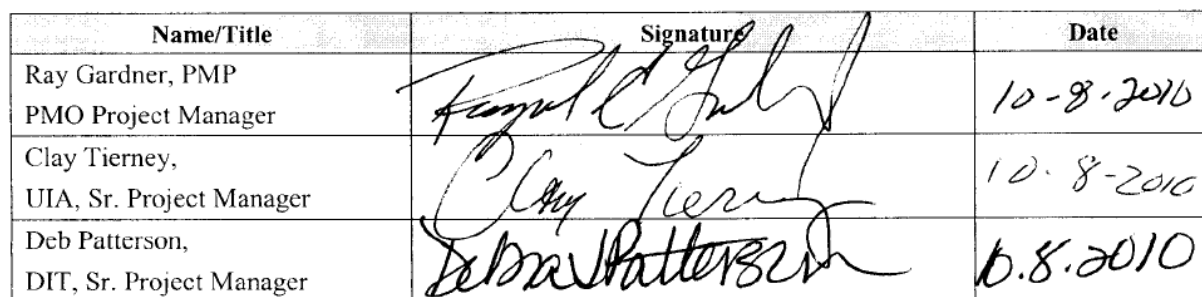 Name/Title Signature Date
Ray Gardner, PMP
PMO Project Manager 10-8-2010
Clay Tierney,
UIA, Sr. Project Manager Clay Tierney 10-8-2010
Deb Patterson,
DIT, Sr. Project Manager Debra J Patterson 10.8.2010